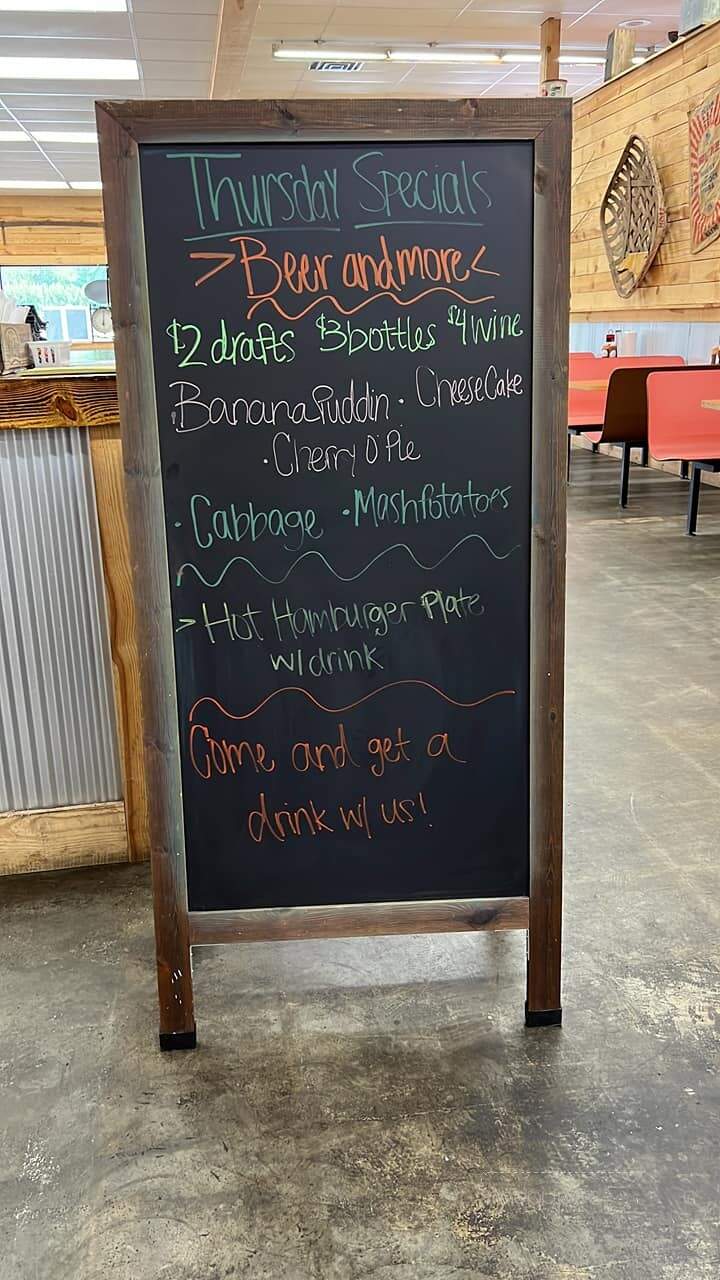 Thursday Specials
>Beer and more<
$2 drafts $3 bottles $4 wine
Banana Puddin · CheeseCake
· Cherry O' Pie
· Cabbage · Mash Potatoes
> Hot Hamburger Plate
w/ drink
Come and get a
drink w/ us!